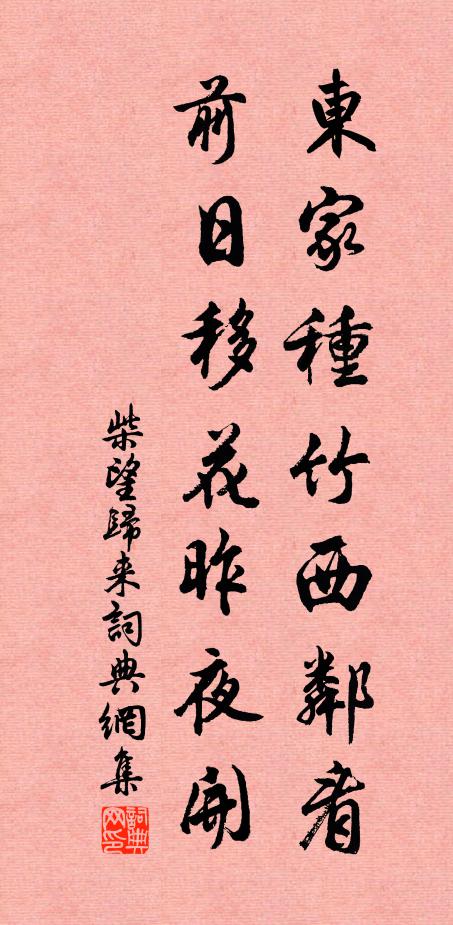 東家種竹西鄰看
前日移花昨夜開
柴望歸来詞典網集
詞典網印